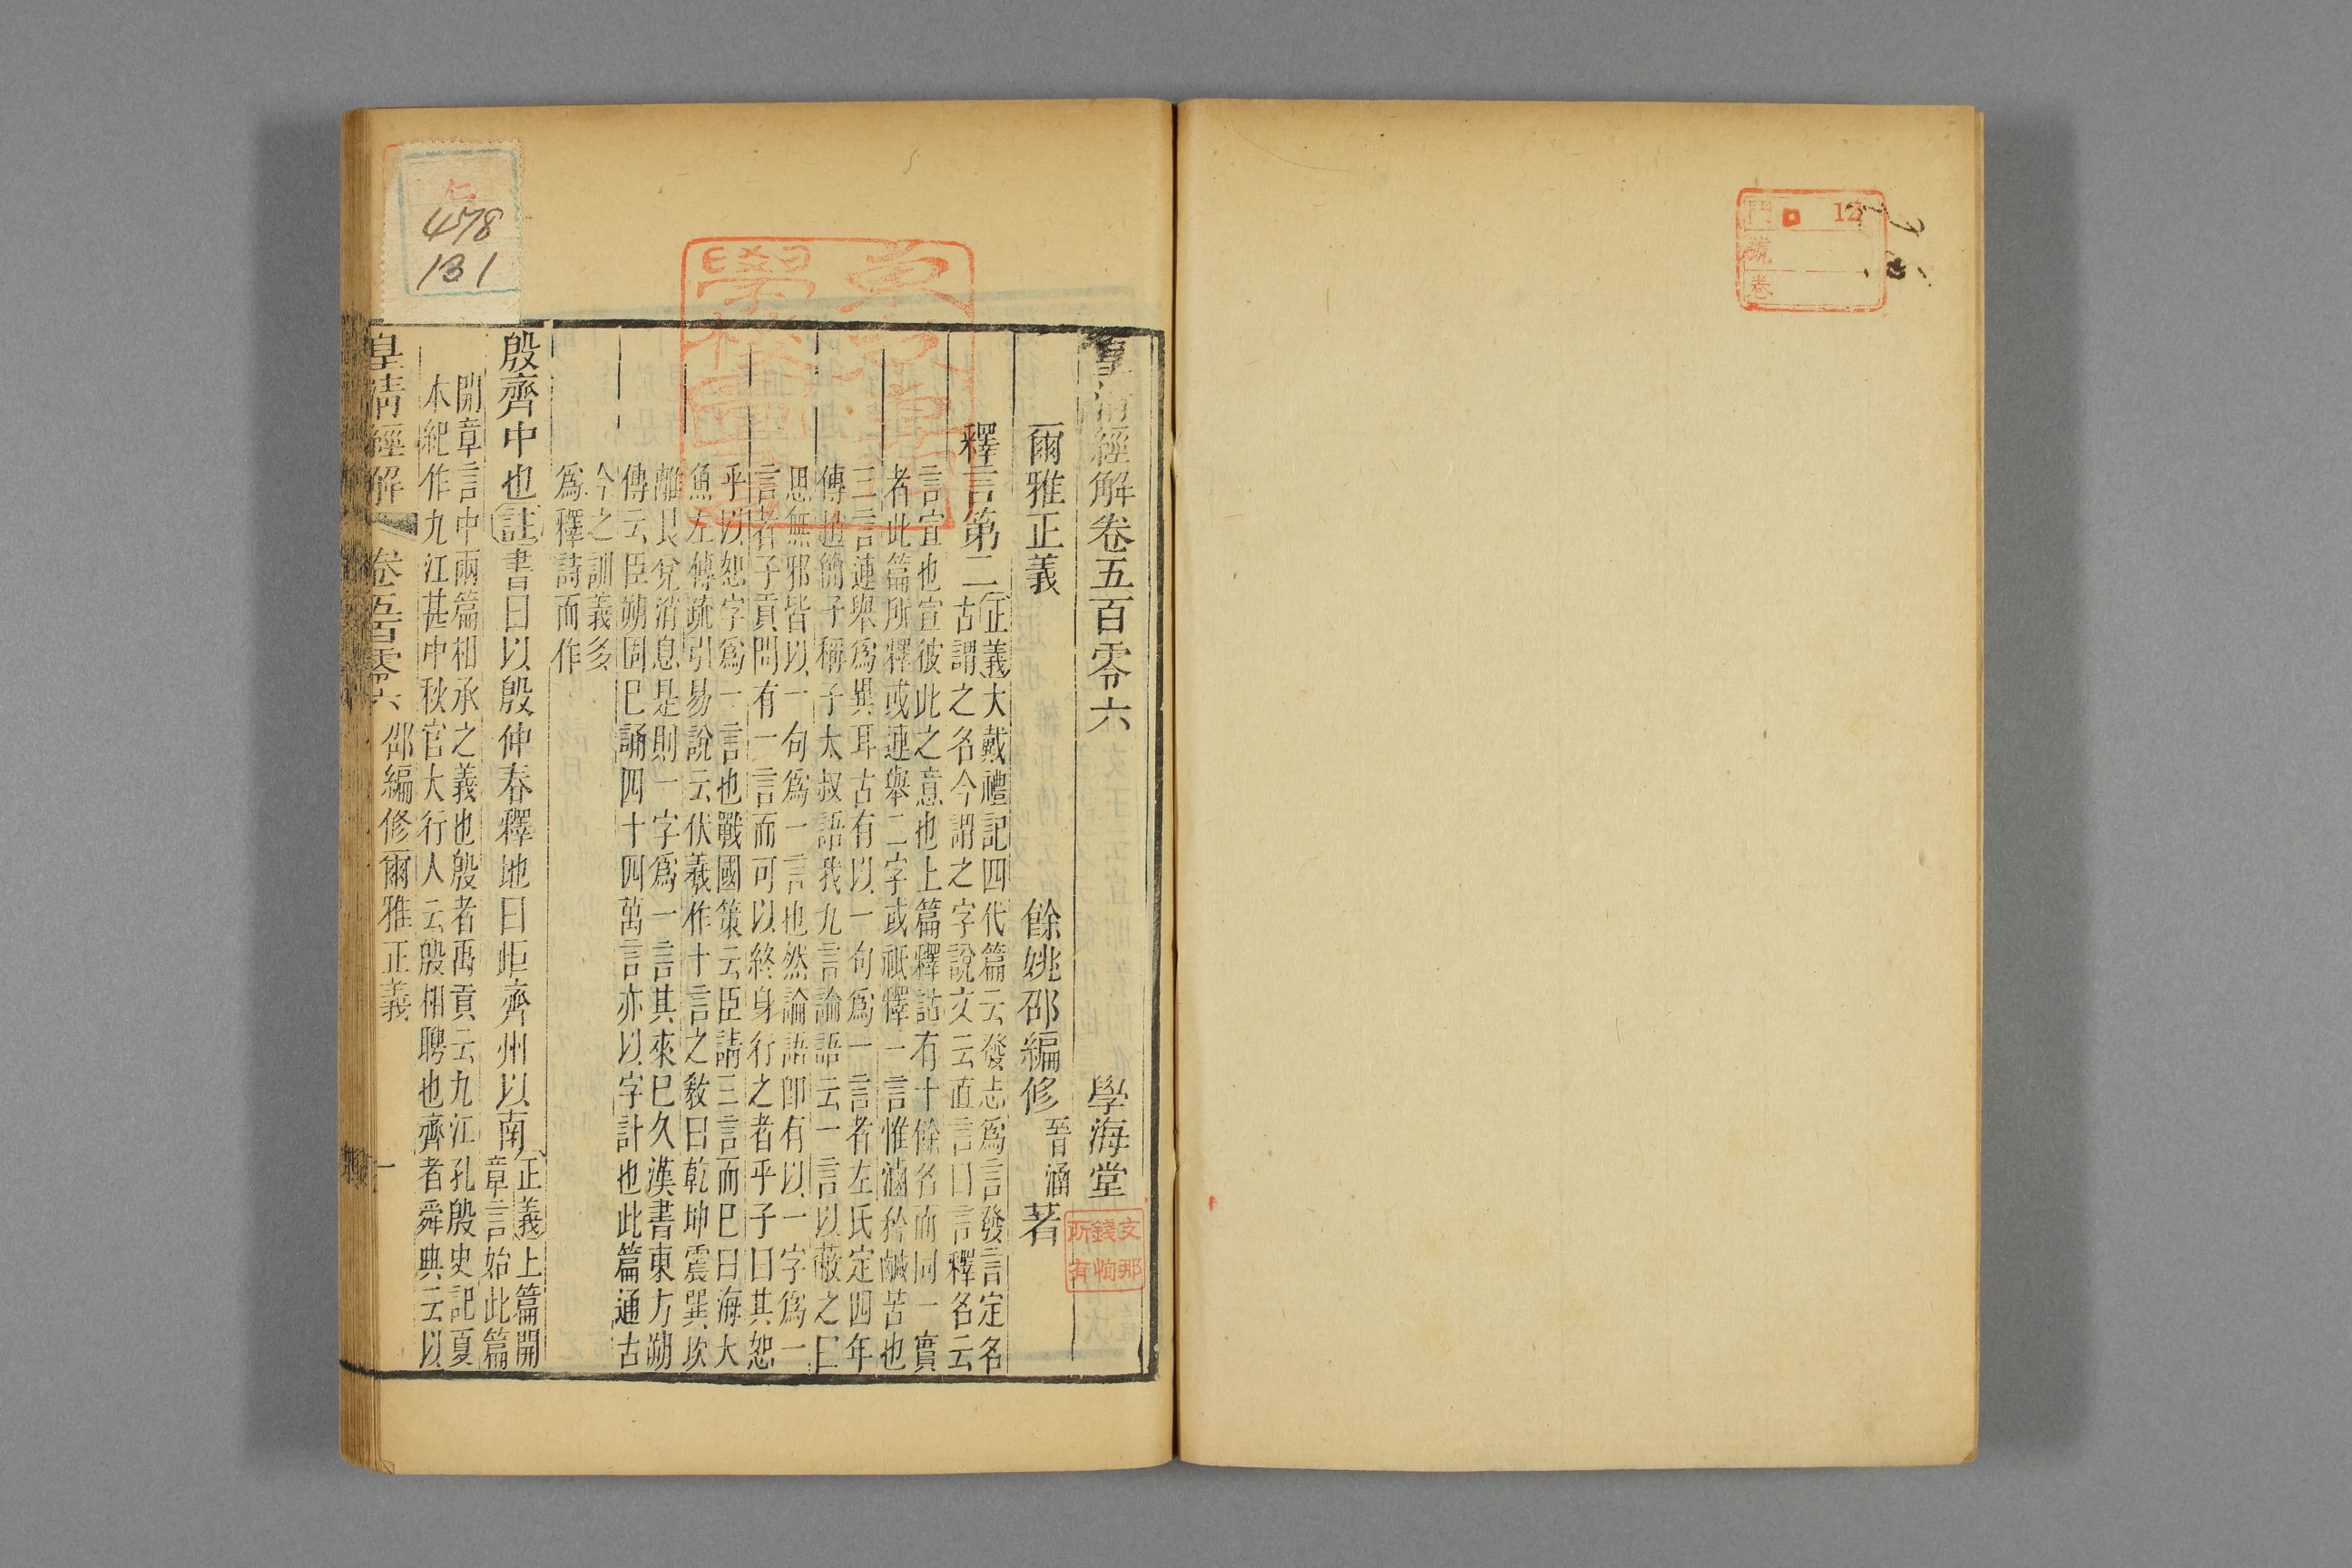 皇清經解卷五百零六
學海堂
爾雅正義
餘姚邵編修晉涵著
釋言第二
正義大戴禮記四代篇云發志爲言發言定名
古謂之名今謂之字說文云直言曰言釋名云
言宣也宣彼此之意也上篇釋詁有十餘名而同一實
者此篇所釋或連舉二字或祇釋一言惟滷矜鹹苦也
三言連舉爲異耳古有以一句爲一言者左氏定四年
傳趙簡子稱子太叔語我九言論語云一言以蔽之曰
思無邪皆以一句爲一言也然論語卽有以一字爲一
言者子貢問有一言而可以終身行之者乎子曰其恕
乎以恕字爲一言也戰國策云臣請三言而已曰海大
魚左傳疏引易說云伏羲作十言之敎曰乾坤震巽坎
離艮兌消息是則一字爲一言其來已久漢書東方朔
傳云臣朔固已誦四十四萬言亦以字計也此篇通古
今之訓義多
爲釋詩而作
殷齊中也註書曰以殷仲春釋地曰岠齊州以南
正義上篇開
章言始此篇
開章言中兩篇相承之義也殷者禹貢云九江孔殷史記夏
本紀作九江甚中秋官大行人云殷相聘也齊者舜典云以
皇清經解
卷五百零六
邵編修爾雅正義
一
478
131
門
號
卷
12
支那
錢恂
所有